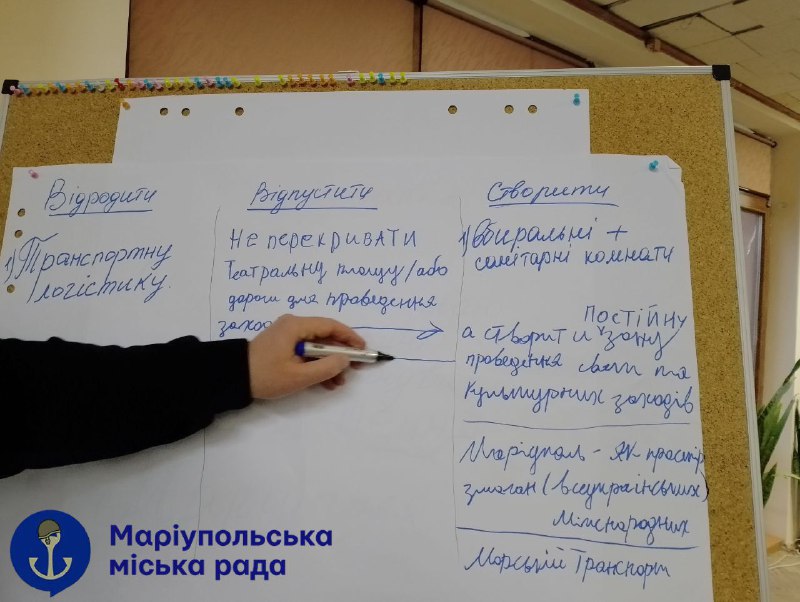 Відродити
1) Транспортну
логістику.
Відпустити
НЕ ПЕРЕКРИВАТИ
Театральну площу/або
дороги для проведення
Створити
1) Вбиральні +
санітарні комнати
ПОСТІЙНУ
а створити зону
проведення свят та
культурних заходів
Маріуполь - як простір
змаган (всеукраїнських)
Міжнародних
Морський Транспорт
Маріупольська
міська рада